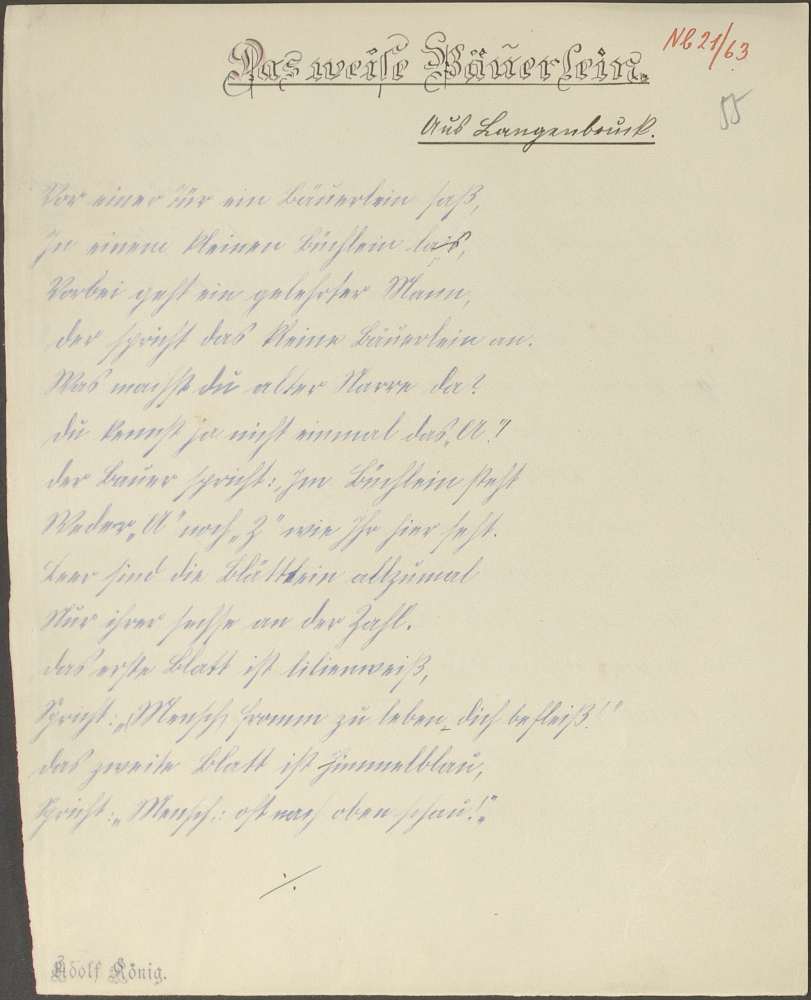 Das weise Bäuerlein.
Nb 21/63
55
Aus Langenbruck.
Vor einer Tür ein Bäuerlein saß,
In einem kleinen Büchlein las,
Vorbei geht ein gelehrter Mann,
der spricht das kleine Bäuerlein an:
Was machst du alter Narre da?
du kennst ja nicht einmal das „A“!
der Bauer spricht: „Im Büchlein steht
Weder „A“ noch „Z“ wie Ihr hier seht.
Leer sind die Blättlein allzumal
Nur ihrer sechse an der Zahl.
das erste Blatt ist lilienweiß,
Spricht: „Mensch, fromm zu leben dich befleiß!“
das zweite Blatt ist himmelblau,
Spricht: „Mensch: oft nach oben schau!“
./.
Adolf König.